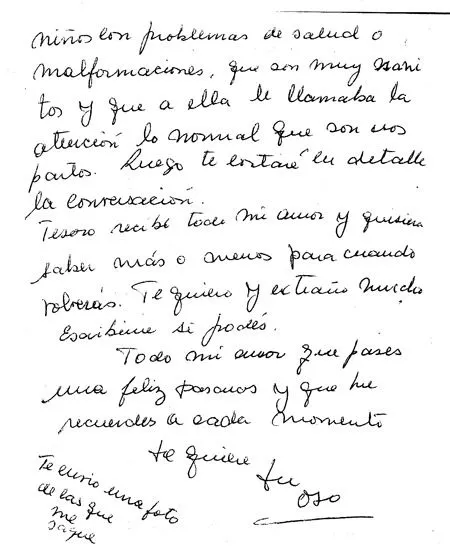 niños con problemas de salud o
malformaciones, que son muy sani
tos y que a ella le llamaba la
atención lo normal que son sus
partos. Luego te contaré en detalle
la conversación.
Tesoro recibí todo mi amor y quisiera
saber más o menos para cuando
volverás. Te quiero y extraño mucho
Escribime si podés.
Todo mi amor que pases
una feliz pascuas y que me
recuerdes a cada momento
te quiere tu
oso
Te envio una foto
de las que
me
saque